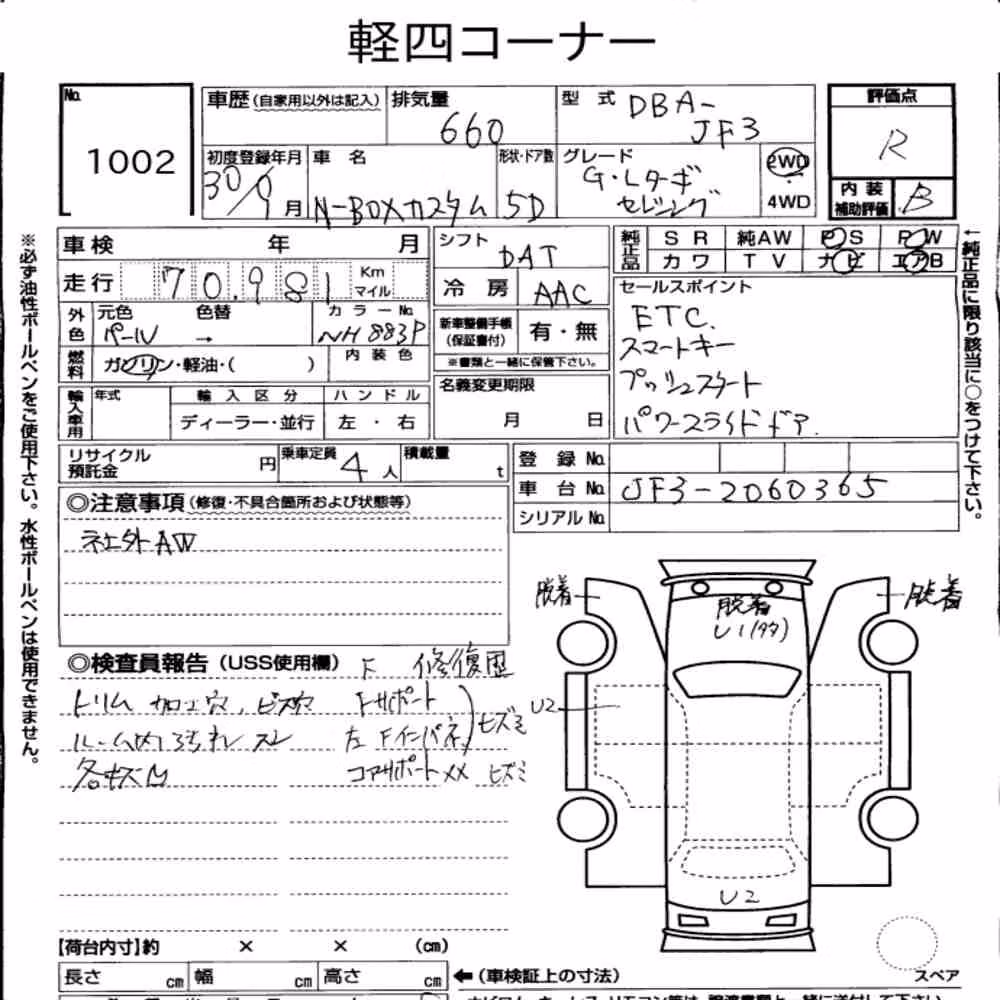 軽四コーナー
No. 1002
車歴 (自家用以外は記入) 排気量 660 型式 DBA-JF3 評価点 R
初度登録年月 30/9月 車名 N-BOXカスタム 形状・ドア数 5D グレード G・Lターボ セレクション 2WD 4WD
内装補助評価 B
車検 年 月
シフト DAT
純正品 SR 純AW PS PW
カワ TV ナビ エアB
走行 70,981 Km マイル
冷房 AAC
外色 元色 パール 色替 → カラーNo. NH883P
新車整備手帳(保証書付) 有・無
※書類と一緒に保管下さい。
セールスポイント
ETC.
スマートキー
プッシュスタート
パワースライドドア.
燃料 ガソリン・軽油・( ) 内装色
名義変更期限 月 日
輸入車用 年式 輸入区分 ハンドル
ディーラー・並行 左・右
リサイクル預託金 円 乗車定員 4人 積載量 t
登録No.
車台No. JF3-2060365
シリアルNo.
◎注意事項(修復・不具合箇所および状態等)
社外AW
◎検査員報告(USS使用欄) F 修復歴
トリム 加工穴、ビス穴 Fサポート
ルーム内よごれ スレ 左Fインパネ ヒズミ
各キズ凹 コアサポートXX ヒズミ
脱着
脱着
脱着
U1(タタ)
U2
U2
【荷台内寸】約 × × (cm)
長さ cm 幅 cm 高さ cm ←(車検証上の寸法)
スペア
※必ず油性ボールペンをご使用下さい。水性ボールペンは使用できません。
←純正品に限り該当に○をつけて下さい。